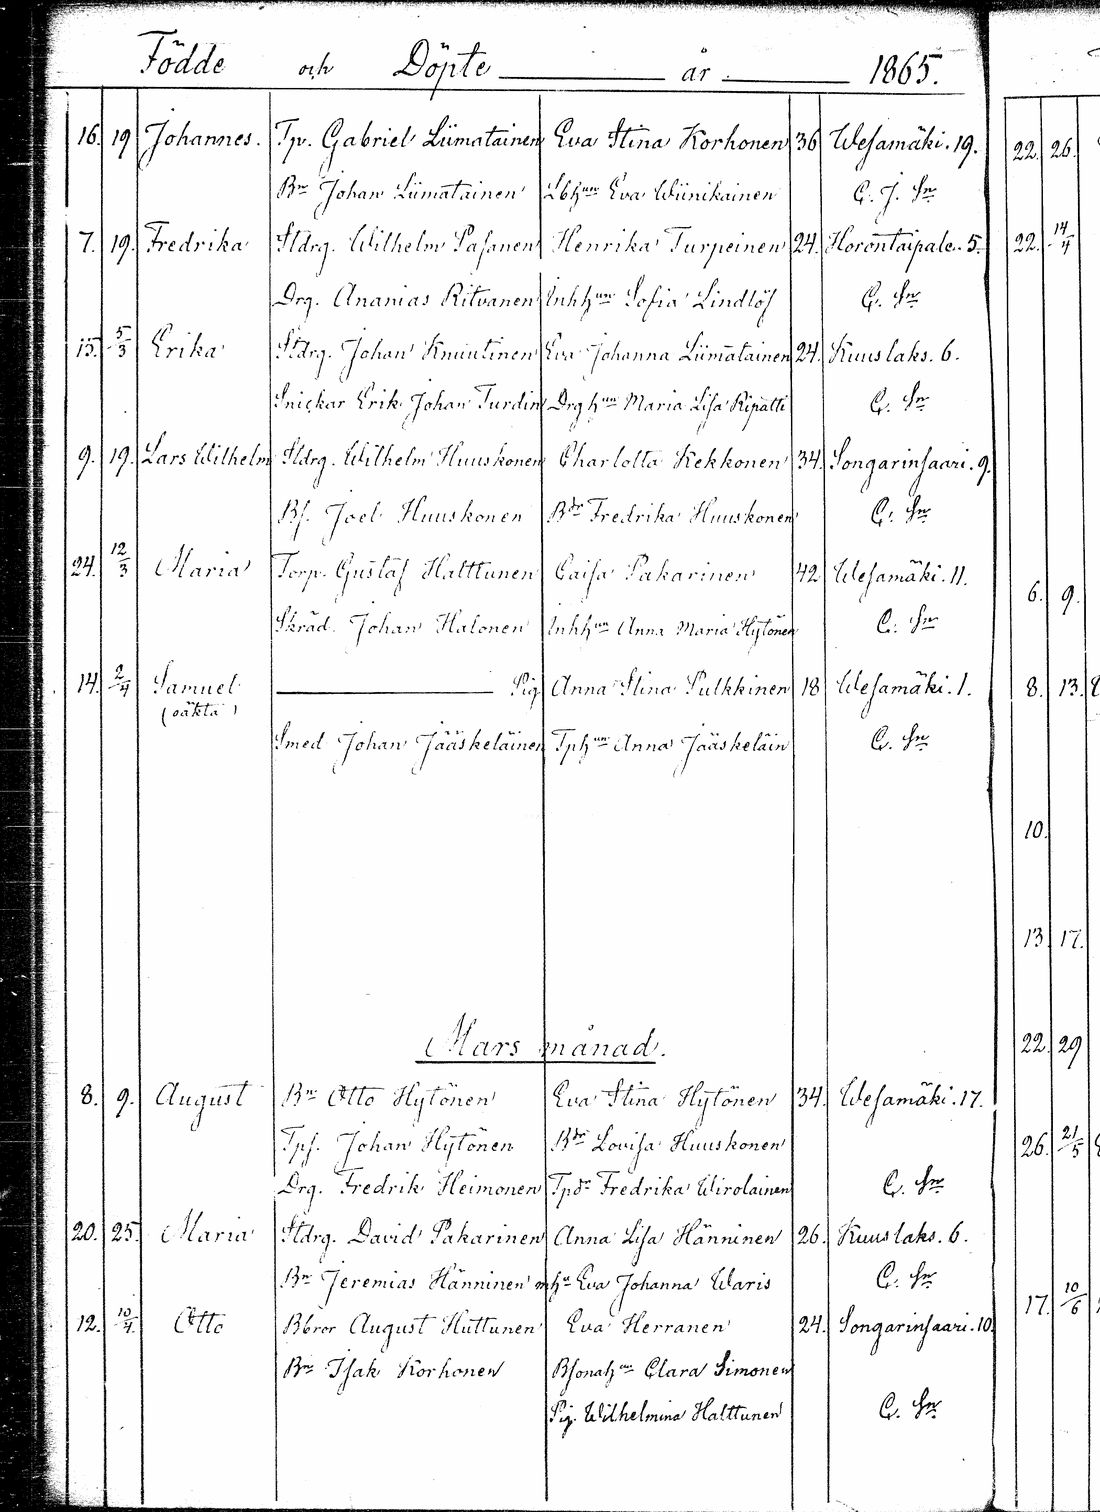 Födde och Döpte år 1865.
16. 19 Johannes. Tp. Gabriel Liimatainen Eva Stina Korhonen 36 Wesamäki. 19.
Bn Johan Liimatainen Lbhun Eva Wiinikainen C. J. Sn
7. 19. Fredrika Stdrg. Wilhelm Pasanen Henrika Turpeinen 24. Horontaipale. 5.
Drg. Ananias Ritvanen Inhhun Sofia Lindlöf C. Sn
15. 5/3 Erika Stdrg. Johan Knuutinen Eva Johanna Liimatainen 24. Kuuslaks. 6.
Snickar Erik Johan Turdin Drghun Maria Lisa Ripatti C. Sn
9. 19. Lars Wilhelm Stdrg. Wilhelm Huuskonen Charlotta Kekkonen 34. Songarinsaari. 9.
Bs. Joel Huuskonen Bdr Fredrika Huuskonen C. Sn
24. 12/3 Maria Torp. Gustaf Halttunen Caisa Pakarinen 42 Wesamäki. 11.
Skräd. Johan Halonen Inhhun Anna Maria Hytönen C. Sn
14. 2/4 Samuel Pig Anna Stina Pulkkinen 18 Wesamäki. 1.
(oäkta)
Smed Johan Jääskeläinen Tphun Anna Jääskeläin C. Sn
Mars månad.
8. 9. August Bn Otto Hytönen Eva Stina Hytönen 34. Wesamäki. 17.
Tps. Johan Hytönen Bdr Lovisa Huuskonen
Drg. Fredrik Heimonen Tpdr Fredrika Wirolainen C. Sn
20. 25. Maria Stdrg. David Pakarinen Anna Lisa Hänninen 26. Kuuslaks. 6.
Bn Jeremias Hänninen mhu Eva Johanna Waris C. Sn
12. 10/4. Otto Bbror August Huttunen Eva Herranen 24. Songarinsaari. 10.
Bn Isak Korhonen Bsonahun Clara Simonen
Pig. Wilhelmina Halttunen C. Sn
22. 26.
22. 14/4
6. 9.
8. 13.
10.
13 17.
22. 29
26. 21/5
17. 10/6